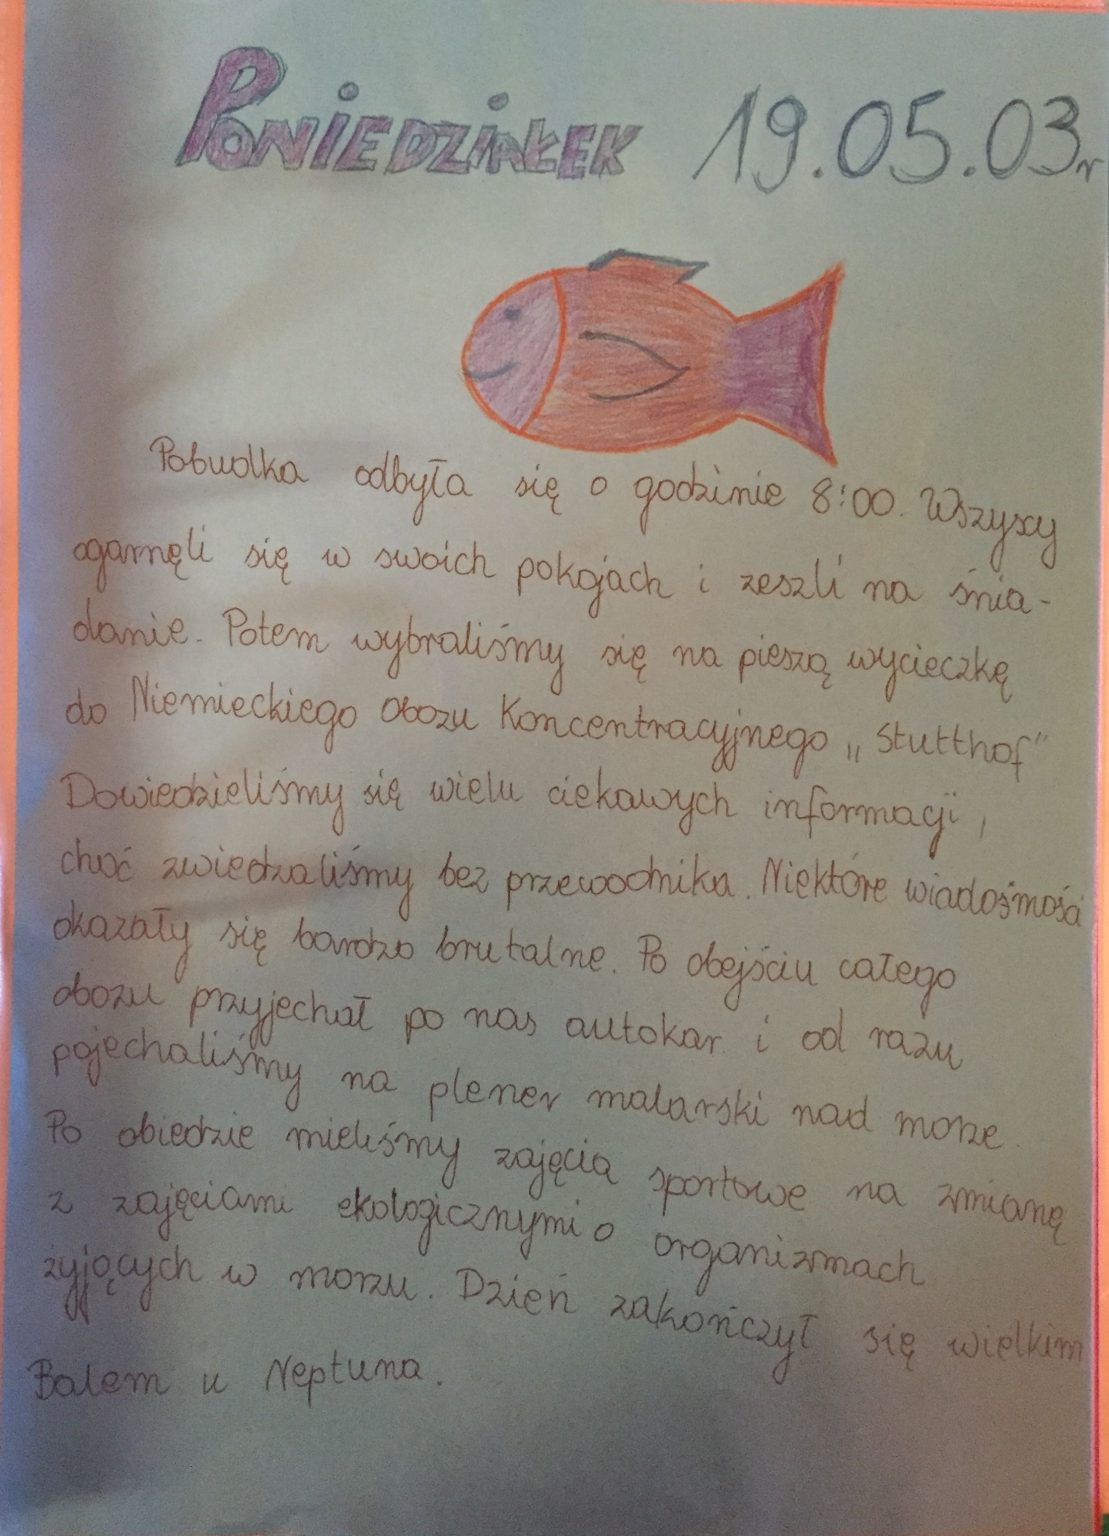 PONIEDZIAŁEK 19.05.03r
Pobudka odbyła się o godzinie 8:00. Wszyscy
ogarnęli się w swoich pokojach i zeszli na śnia-
danie. Potem wybraliśmy się na pieszą wycieczkę
do Niemieckiego Obozu Koncentracyjnego „Stutthof"
Dowiedzieliśmy się wielu ciekawych informacji,
choć zwiedzaliśmy bez przewodnika. Niektóre wiadośmości
okazały się bardzo brutalne. Po obejściu całego
obozu przyjechał po nas autokar i od razu
pojechaliśmy na plener malarski nad morze.
Po obiedzie mieliśmy zajęcia sportowe na zmianę
z zajęciami ekologicznymi o organizmach
żyjących w morzu. Dzień zakończył się wielkim
Balem u Neptuna.